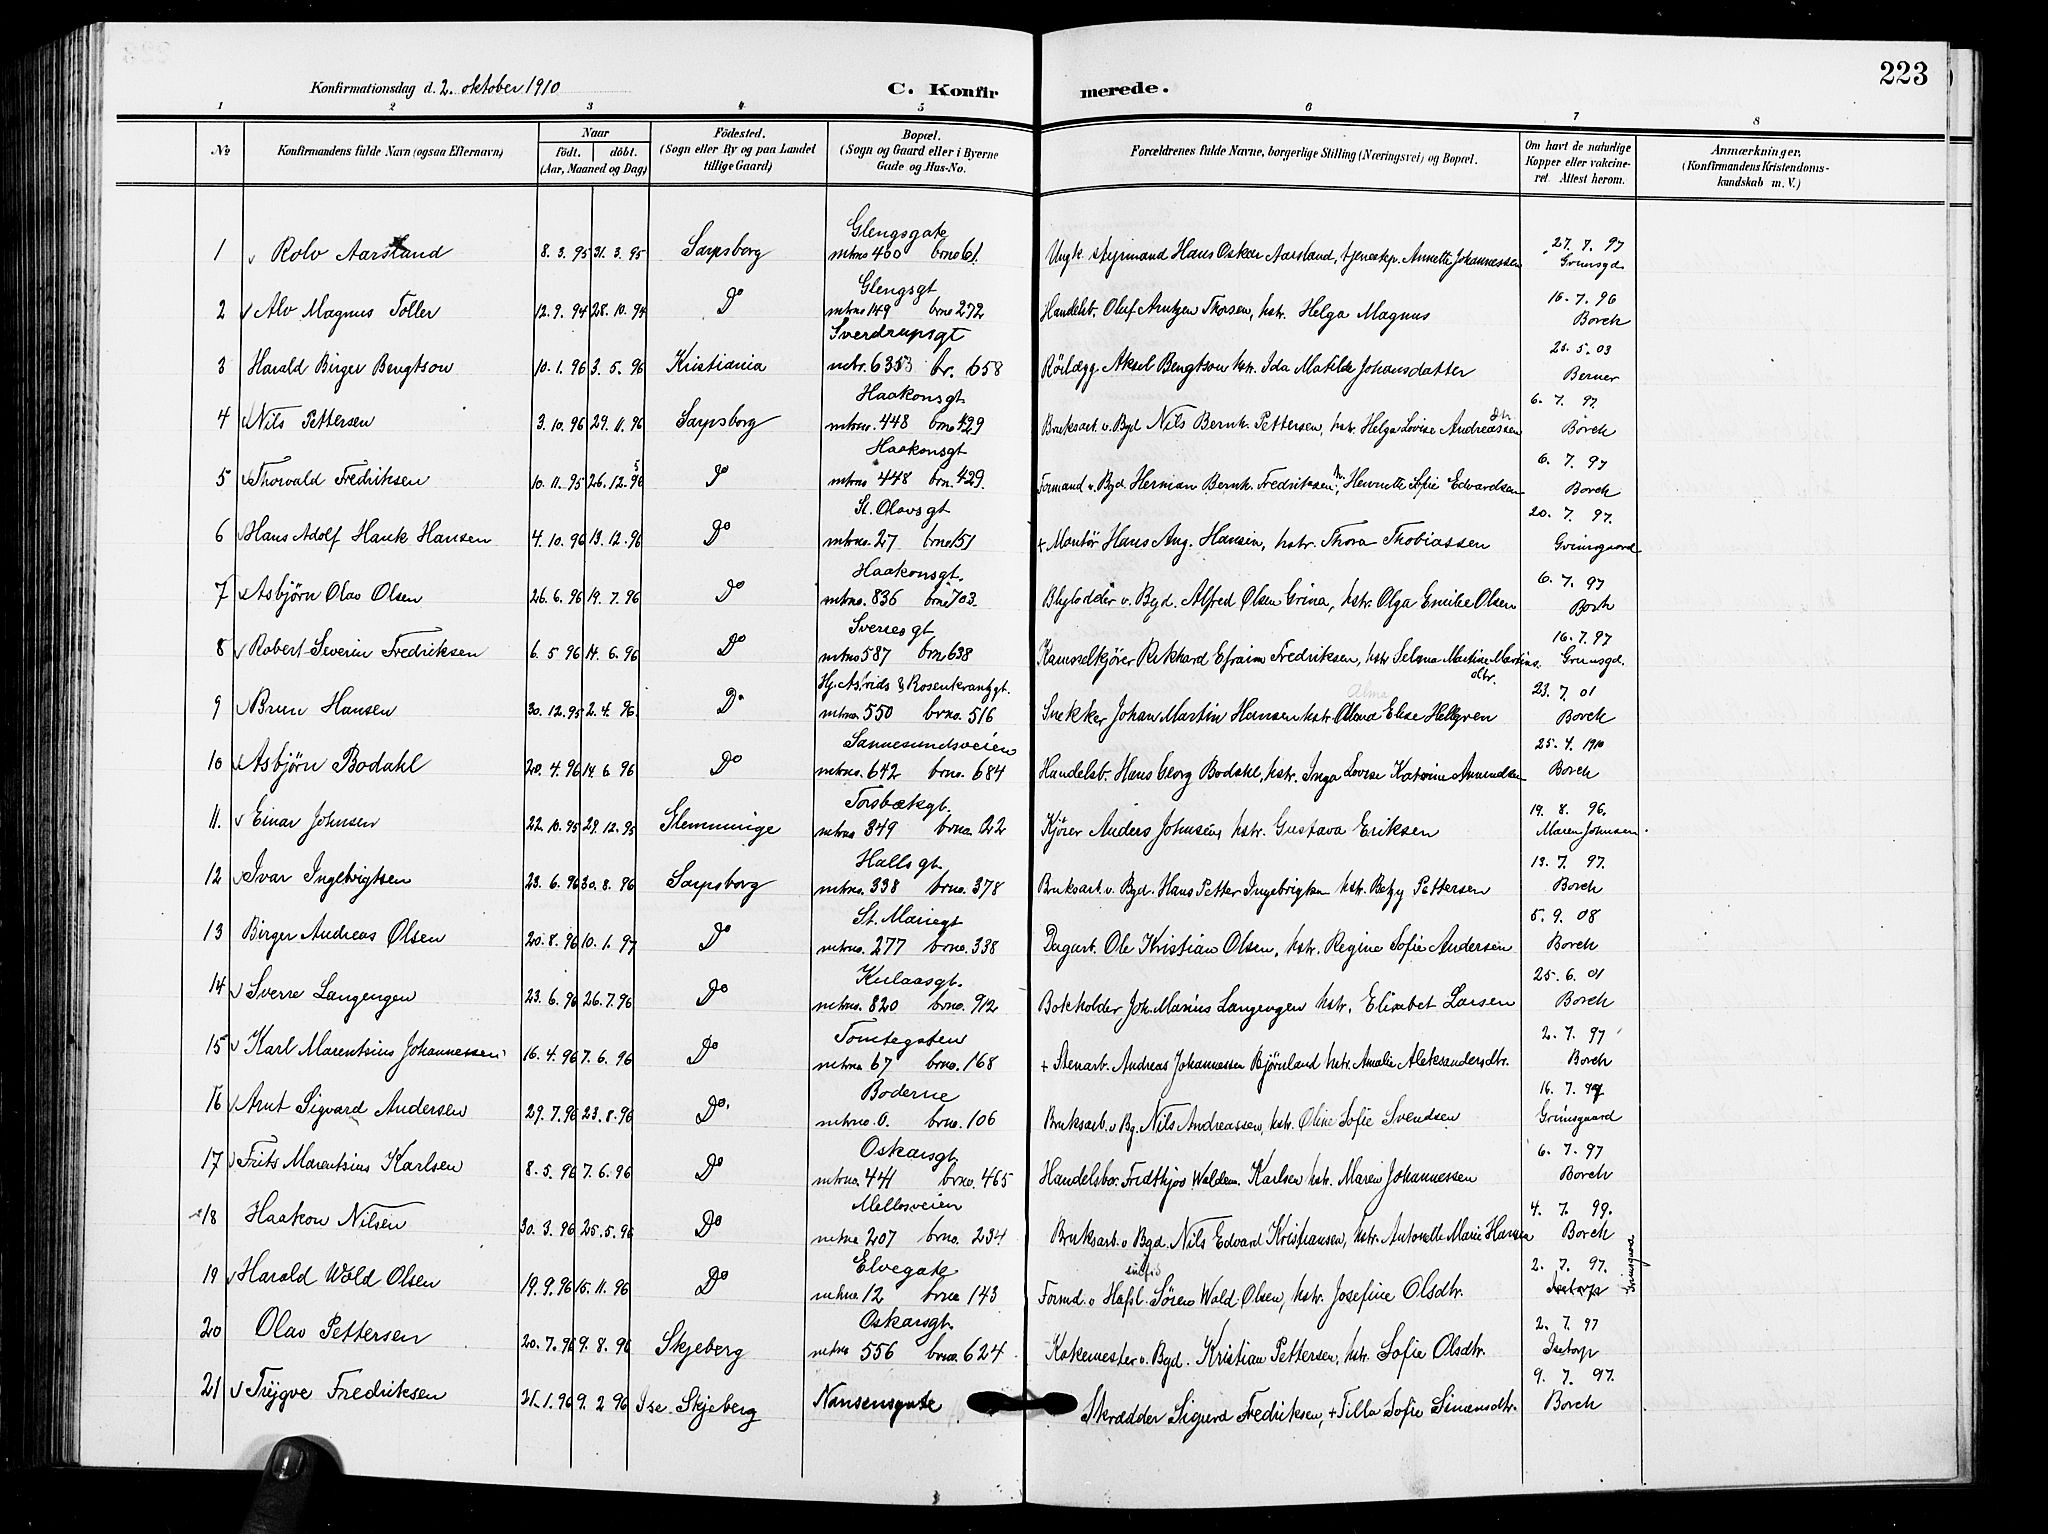 223
Konfirmationsdag d. 2. oktober 1910
C. Konfirmerede.
1 2 3 4 5 6 7 8
No
Konfirmandens fulde Navn (ogsaa Efternavn)
Naar
födt. döbt.
(Aar, Maaned og Dag)
Födested.
(Sogn eller By og paa Landet
tillige Gaard)
Bopæl.
(Sogn og Gaard eller i Byerne
Gade og Hus-No.
Forældrenes fulde Navne, borgerlige Stilling (Næringsvei) og Bopæl.
Om havt de naturlige
Kopper eller vakcine-
ret. Attest herom.
Anmærkninger,
(Konfirmandens Kristendoms-
kundskab m. V.)
Glengsgate 27. 7. 97
1 Rolv Aarsland 8. 3. 95 31. 3. 95 Sarpsborg mtrno 400 brno 61. Ungk. styrmand Hans Oskar Aarsland, tjenestep. Annette Johannessen Grimsgd.
Glengsgt 16. 7. 96
2 Alv Magnus Toller 12. 9. 94 28. 10. 94 Do mtrno 149 brno 272 Handelsb. Oluf Arntzen Thorsen, hstr. Helga Magnus Borch
Sverdrupsgt 5. 03
3 Harald Birger Bengtson 10. 1. 96 3. 5. 96 Kristiania mtr. 6353 br. 658 Rörlægg. Aksel Bengtson hstr. Ida Matilde Johansdatter Berner
Haakonsgt 6. 7. 97.
4 Nils Pettersen 3. 10. 96 29. 11. 96 Sarpsborg mtrno. 448 brno 429 Bruksarb. v. Bgd Nils Bernh. Pettersen, hstr. Helga Lovise Andreassen dtr Borch
Haakonsgt 6. 7. 97
5 Thorvald Fredriksen 10. 11. 95 26. 12. 96 5 Do mtrno 448 brn. 429. Formand v. Bgd. Herman Bernh. Fredriksen, h. Henriette Sofie Edvardsen Borch
St. Olavsgt 20. 7. 97.
6 Hans Adolf Hauk Hansen 4. 10. 96 13. 12. 96 Do mtrno. 27 brno 151 + Montör Hans Aug. Hansen, hstr. Thora Thobiassen Grimsgaard
Haakonsgt. 6. 7. 97
7 Asbjörn Olav Olsen 26. 6. 96 19. 7. 96 Do mtrno. 836 brno 703. Blylodder v. Bgd. Alfred Olsen Grina, hstr. Olga Emilie Olsen Borch
Sverresgt 16. 7. 97
8 Robert Severin Fredriksen 6. 5 96 14. 6. 96 Do mtrno 587 brn 638 Rikhard Efraim Fredriksen, hstr Selma Martine Martins. dtr. Grimsgd.
Hj. Astrids & Rosenkrantzgt. Alma 23. 7. 01
9 Brun Hansen 30. 12. 95 2. 4. 96. Do mtrno. 550 brno. 516 Snekker Johan Martin Hansen hstr. Olava Elise Hellgren Borch
Sannesundsveien 25. 4. 1910
10 Asbjörn Bodahl 20. 4. 96 14. 6. 96 Do mtrno. 642 brno. 684 Handelsb. Hans Georg Bodahl, hstr. Inga Lovise Katrine Amundsen Borch
Torsbækgt. 19. 8. 96.
11. Einar Johnsen 22. 10. 95 29. 12. 95 Glemminge mtrno 349 brno. 22 Kjörer Anders Johnsen, hstr. Gustava Eriksen Maren Johnsen.
Hallsgt. 13. 7. 97.
12 Ivar Ingebrigtsen 23. 6. 96 30. 8. 96 Sarpsborg mtrno. 338 brno. 378 Bruksarb. v. Bgd. Hans Petter Ingebrigtsen hstr. Petzy Pettersen Borch
St. Mariegt 5. 9. 08
13 Birger Andreas Olsen 20. 8. 96 10. 1. 97 Do mtrno. 277 brno. 338 Dagarb. Ole Kristian Olsen, hstr. Regine Sofie Andersen Borch
Kulaasgt. 25. 6. 01
14 Sverre Langengen 23. 6. 96 26. 7. 96 Do mtrno. 820 brno. 912 Bokholder Joh. Marius Langengen hstr. Elisabet Larsen Borch
Tomtegaten 2. 7. 97
15 Karl Marentsius Johannessen 16. 4. 96 7. 6. 96 Do mtrno 67 brno. 168 + Stenarb. Andreas Johannessen Björnland hstr. Amalie Aleksandersdtr. Borch
Boderne 16. 7. 97
16 Arnt Sigvard Andersen 29. 7. 96 23. 8. 96 Do. mtrno. 0. brno. 106 Bruksarb. v. Bg. Nils Andreassen, hstr. Oline Sofie Svendsen Grimsgaard
Oskarsgt. 6. 7. 97
17 Frits Marentsius Karlsen 8. 5. 96 7. 6. 96 Do mtrno. 441 brno. 465 Handelsbor. Fridthjov Waldem. Karlsen hstr. Maren Johannessen Borch
Mellosveien 4. 7. 99.
18 Haakon Nilsen 30. 3. 96 25. 5. 96 Do mtrno 207 brno. 234 Bruksarb. v Bgd. Nils Edvard Kristiansen, hstr. Antonette Marie Hansen Borch
Elvegate 2. 7. 97. Grimsgaard
19 Harald Wold Olsen 19. 9. 96 15. 11. 96 Do mtrno 12 brno 143 Formd. v Hafsl. Sören Wold Olsen, hstr. Josefine Olsdtr. Isetorp
Oskarsgt. 2. 7. 97
20 Olav Pettersen 20. 7. 96 9. 8. 96 Skjeberg mtrno 556 brno. 624 Kokemester v. Bgd. Kristian Pettersen, hstr. Sofie Olsdtr. Isetorp
9. 7. 97.
21 Trygve Fredriksen 31. 1. 96 9. 2 96 Ise. Skjeberg Nansensgate Skrædder Sigurd Fredriksen, + Tilla Sofie Simensdtr. Borch